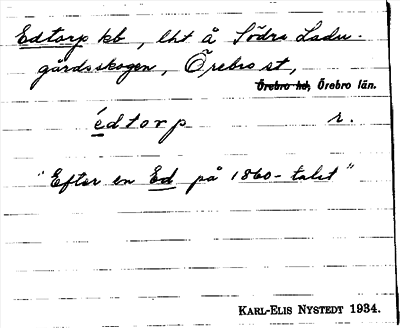 Edtorp kb, lht å Södra Ladu-
gårdsskogen, Örebro st,
Örebro hd, Örebro län.
édtorp r.
"Efter en Ed på 1860-talet"
KARL-ELIS NYSTEDT 1934.